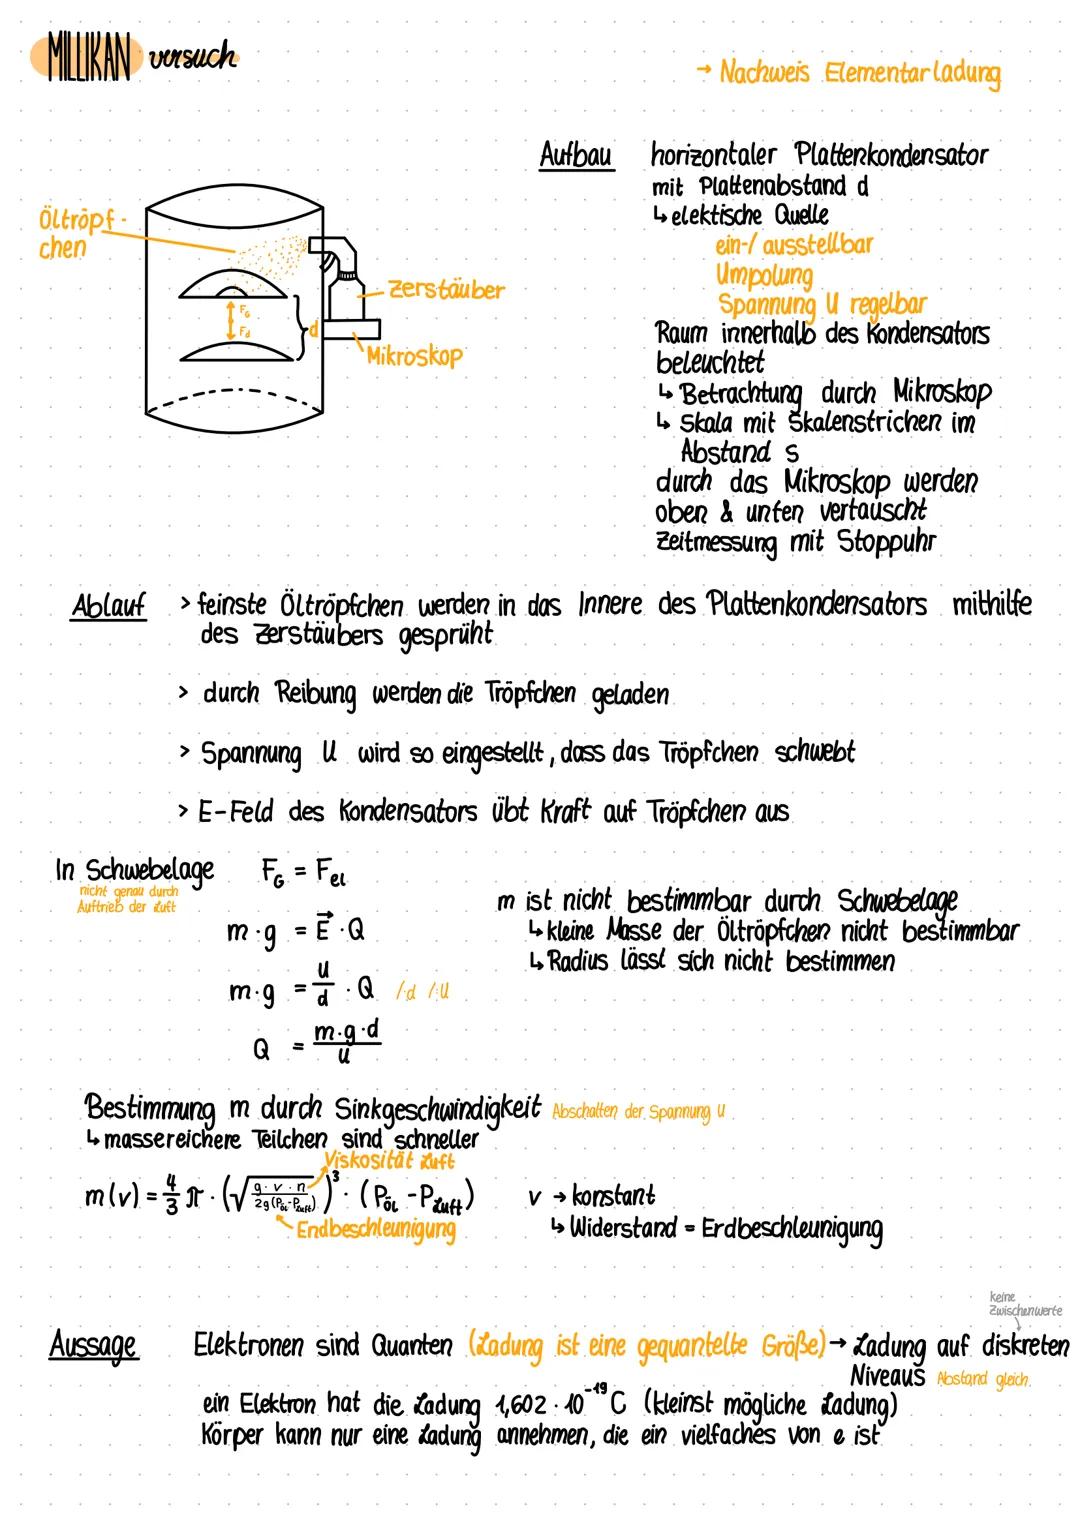 MILLIKAN versuch
→ Nachweis Elementarladung
Aufbau horizontaler Plattenkondensator
mit Plattenabstand d
↳ elektische Quelle
ein-/ ausstellbar
Umpolung
Spannung U regelbar
Raum innerhalb des Kondensators
beleuchtet
↳ Betrachtung durch Mikroskop
↳ Skala mit Skalenstrichen im
Abstand s
durch das Mikroskop werden
oben & unten vertauscht
Zeitmessung mit Stoppuhr
Öltröpf-
chen
Zerstäuber
F_G
F_el
d
Mikroskop
Ablauf > feinste Öltröpfchen werden in das Innere des Plattenkondensators mithilfe
des Zerstäubers gesprüht
> durch Reibung werden die Tröpfchen geladen
> Spannung U wird so eingestellt, dass das Tröpfchen schwebt
> E-Feld des Kondensators übt Kraft auf Tröpfchen aus
In Schwebelage F_G = F_el
nicht genau durch
Auftrieb der Luft
m·g = E⃗ · Q
m·g = U/d · Q /·d /:U
Q = m·g·d/U
m ist nicht bestimmbar durch Schwebelage
↳ kleine Masse der Öltröpfchen nicht bestimmbar
↳ Radius lässt sich nicht bestimmen
Bestimmung m durch Sinkgeschwindigkeit Abschalten der Spannung U
↳ massereichere Teilchen sind schneller
Viskosität Luft
m(v) = 4/3 π · (√(9·v·n / 2g(P_Öl - P_Luft)))³ · (P_Öl - P_Luft)
Endbeschleunigung
v → konstant
↳ Widerstand = Erdbeschleunigung
keine
Zwischenwerte
Aussage Elektronen sind Quanten (Ladung ist eine gequantelte Größe) → Ladung auf diskreten
Niveaus Abstand gleich
ein Elektron hat die Ladung 1,602 · 10⁻¹⁹ C (kleinst mögliche Ladung)
Körper kann nur eine Ladung annehmen, die ein vielfaches von e ist